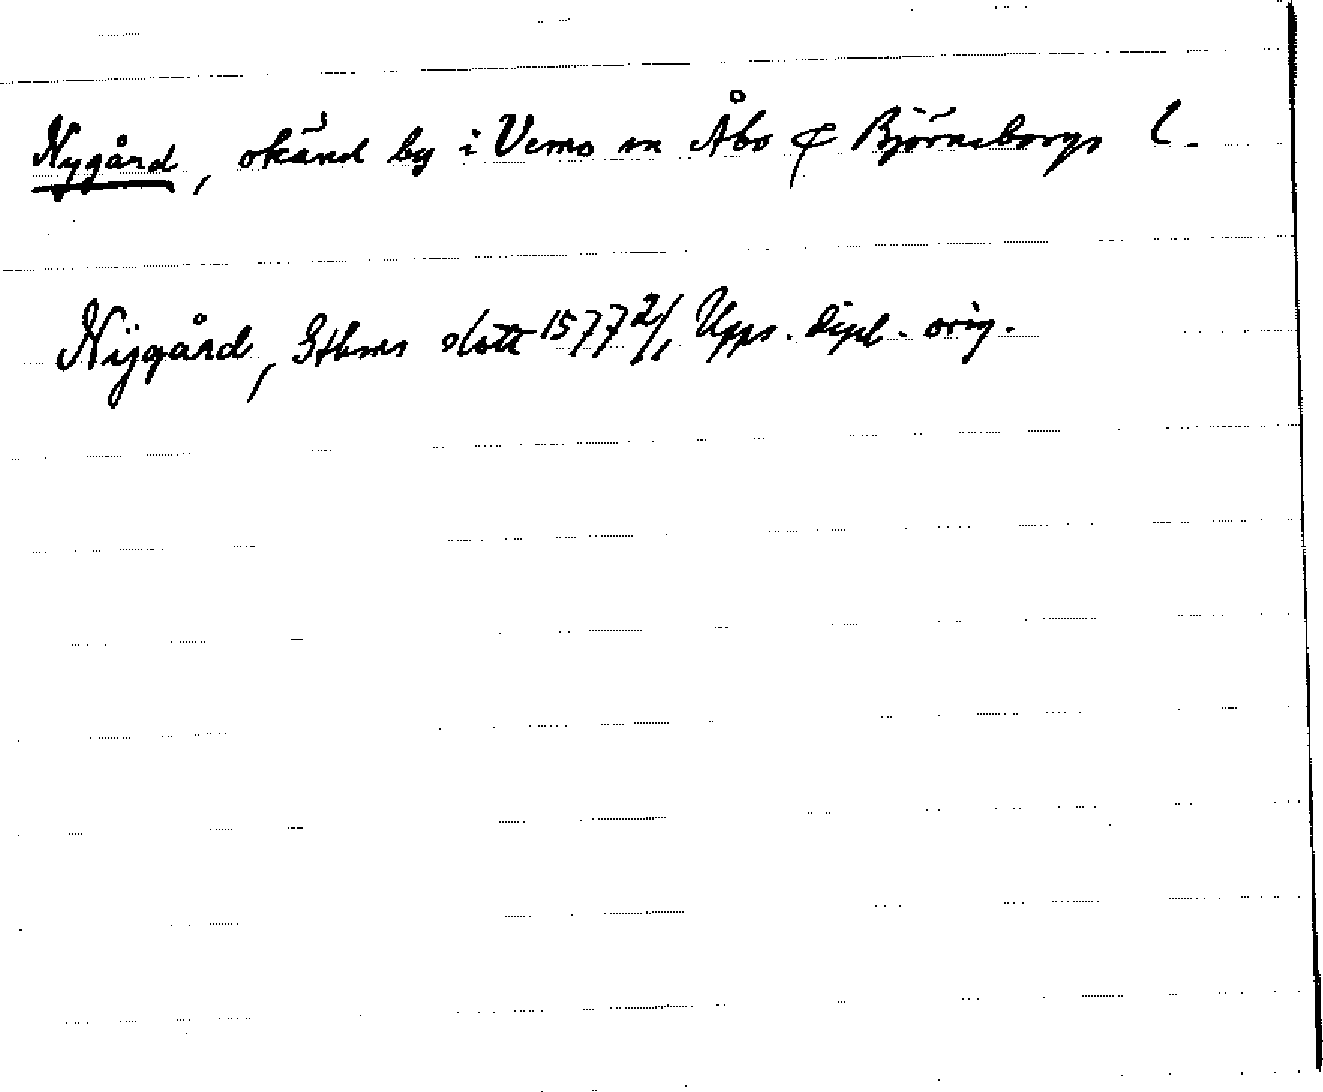 Nygård, okänd by i Vemo sn Åbo & Björneborgs l.
Nÿgård, Sthms slott 1577 2/1, Upps. dipl. orig.